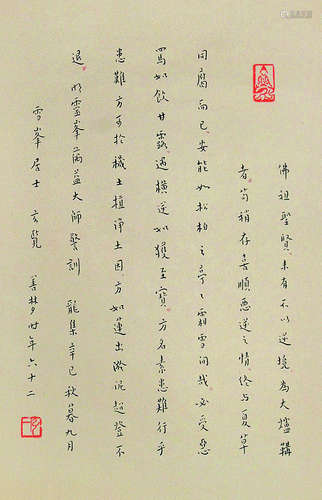 佛祖聖賢未有不以逆境為大爐鞴
者苟稍存喜順惡逆之情終与夏草
同腐而已安能如松柏之亭亭霜雪间哉必受惡
罵如飲甘露遇橫逆如獲至寶方名素患難行乎
患難方可於穢土植淨土因方如蓮出淤泥超登不
退 明靈峯蕅益大師警訓 龍集辛巳秋暮九月
雪峯居士 玄覽 善夢 时年六十二